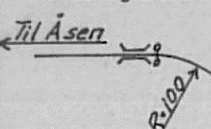 Til Åsen
R=100